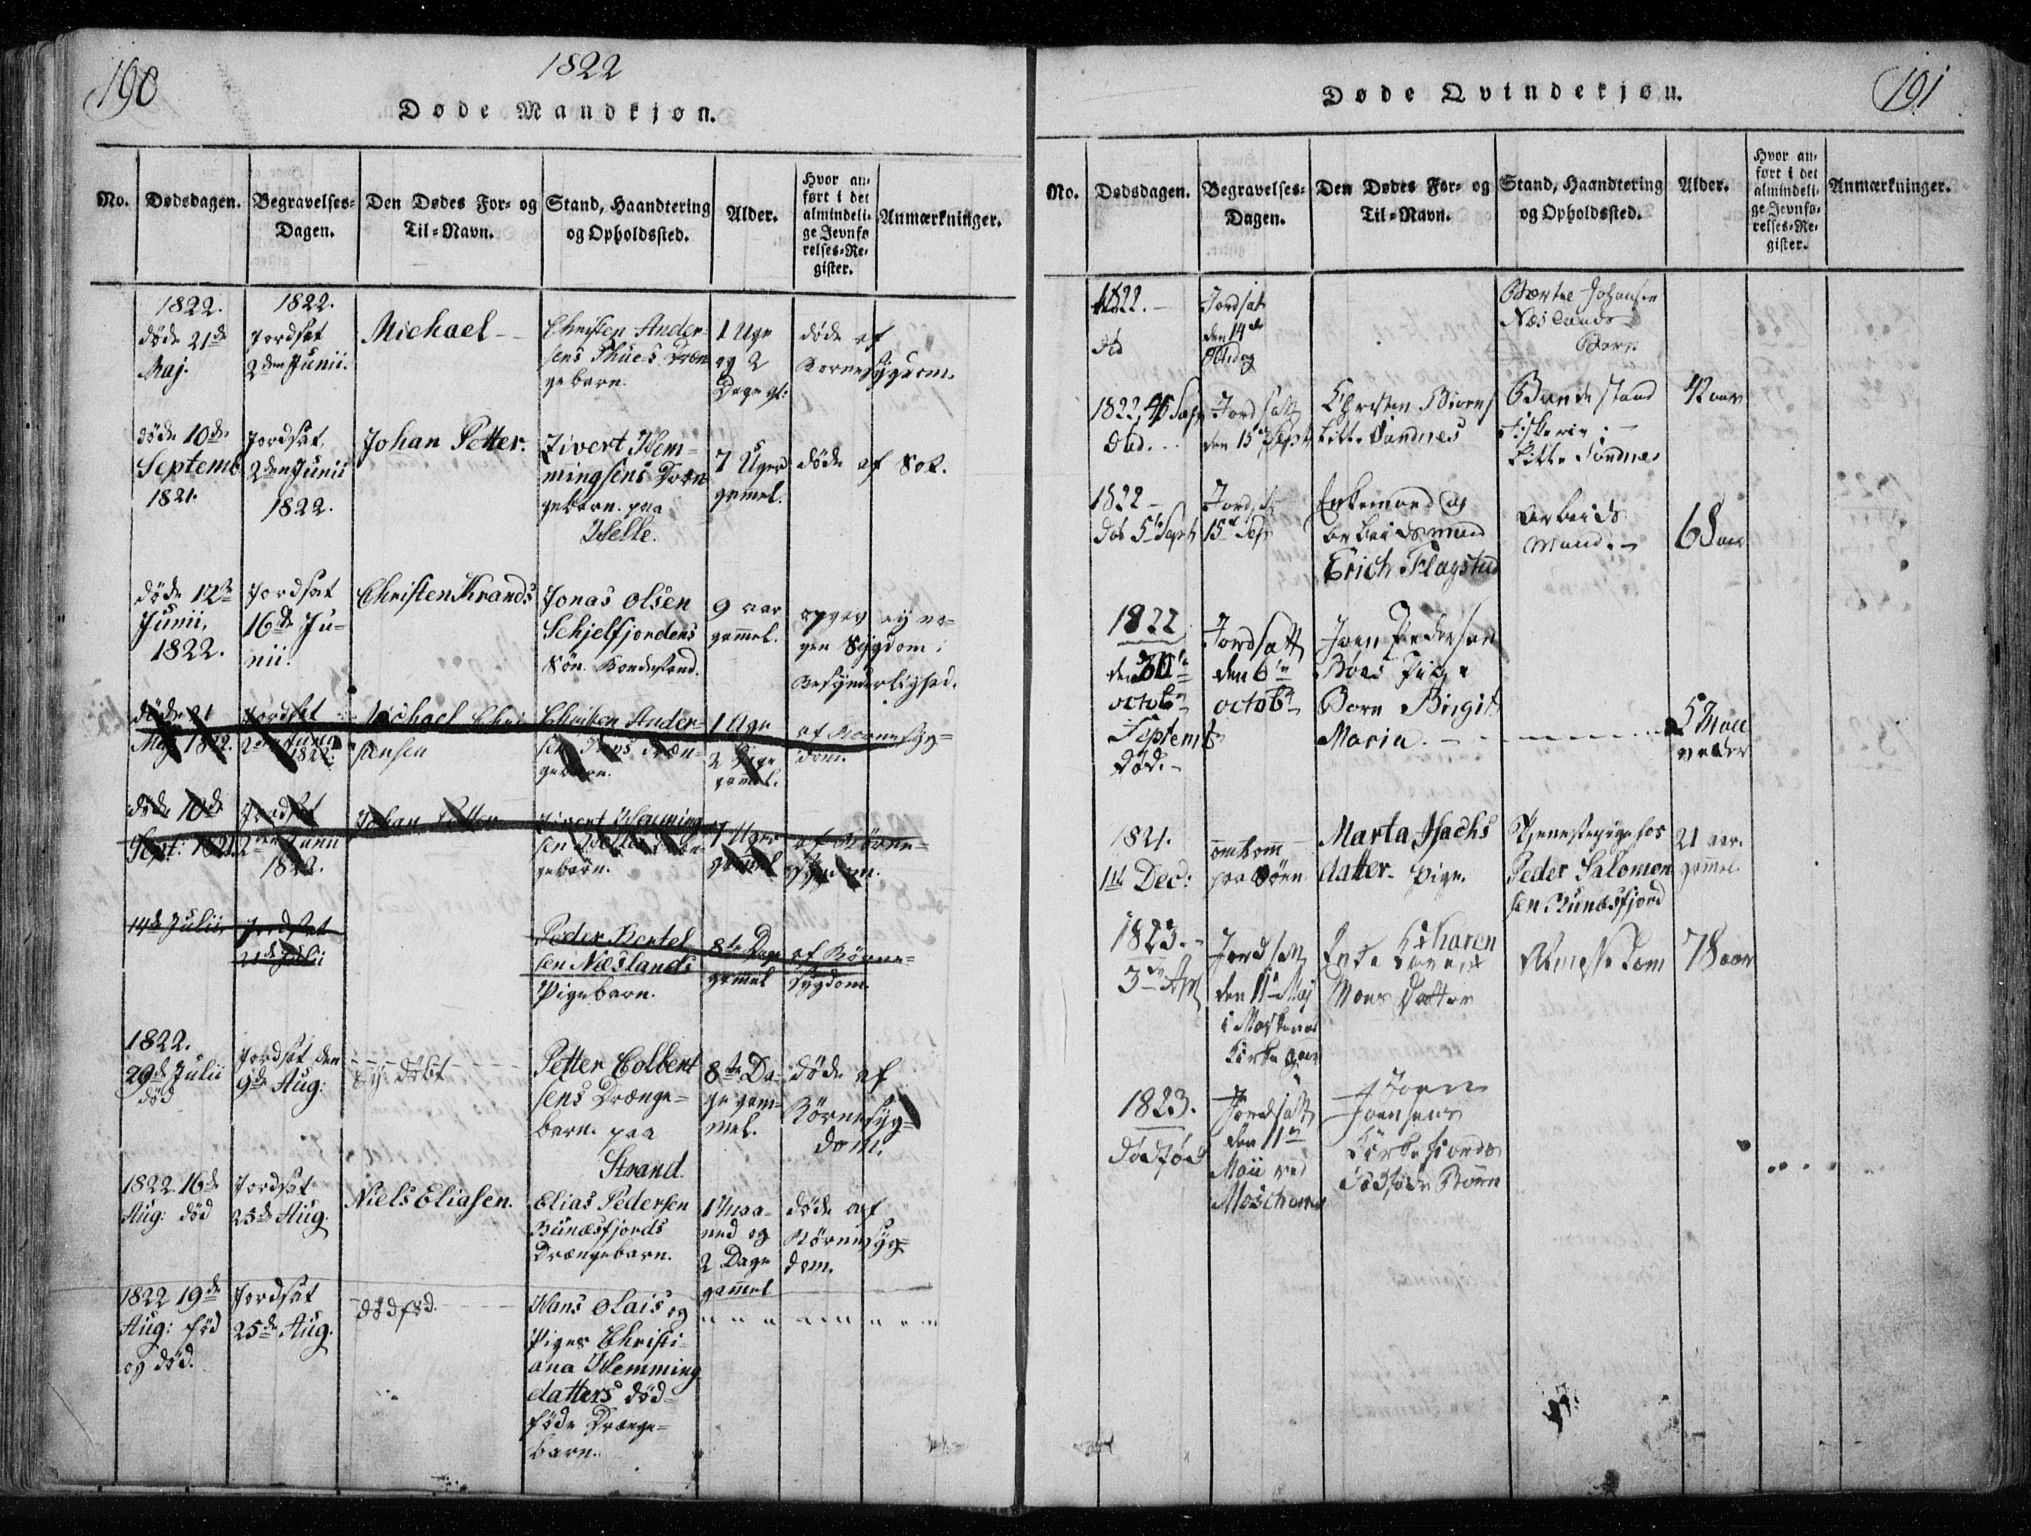 190
1822
Døde Mandkjøn.
No.
Dødsdagen.
Begravelses-
Dagen.
Den Dødes For- og
Til-Navn.
Stand, Haandtering
og Opholdssted.
Alder.
Hvor an-
ført i det
almindeli-
ge Jevnfø-
relses-Re-
gister.
Anmærkninger.
1822.
døde 21de
Maj.
1822.
Jordsat
2den Junii.
Michael
Christen Ander-
sens Thues Dræn-
gebarn.
1 Uge
og 2
Dage gl:
døde af
Bornesygdom.
døde 10de
Septemb
1821.
Jordsat
2den Junii
1822.
Johan Petter.
Zivert Hem-
mingsens Dræn-
gebarn. paa
Helle.
7 Uger
gamel.
døde af Sot.
døde 12te
Junii,
1822.
Jordsat
16de Ju-
nii.
Christen Strands
Jonas Olsen
Schjelfjordens
Søn. Bondestand.
9 aar
gammel.
opgev ej no-
gen Sygdom i
Besynderlighed.
døde 21
Maj 1822.
Jordsat
2den Junii
1822.
Michael Chri
stensen
Christen Ander-
sen Thues Dræn-
gebarn.
1 Uge
2 Dage
gamel.
af Bornesyg-
dom.
døde 10de
Sept: 1821
Jordsat
2den Junii
1822.
Johan Petter
Zivert Hemming
gebarn.
7 Uger
gamel
af Børne-
sygdom.
14de Julii
Jordsat
21de Julii
Peder Bertel
sen Næslands
Pigebarn.
8te Dage
gamel
af Børne-
sygdom.
1822.
29de Julii
død
Jordsat den
9de Aug:
Ej døbt
Petter Colbent
sens Drænge-
barn. paa
Strand.
8te Da-
ge gam-
mel.
døde af
Børnesyg-
dom.
1822 16de
Aug: død
Jordsat
25de Aug.
Niels Eliasen.
Elias Pedersen
Bunæsfjords
Drængebarn.
1 Maa-
ned og
2 Dage
gammel
døde af
Børnesyg-
dom.
1822 19de
Aug: fød
og død.
Jordsat
25de Aug.
dødfød.
Hans Olais og
Piges Christi-
ana Hemming
datters død-
føde Drænge-
barn.
191
Døde Qvindekjøn.
No.
Dødsdagen.
Begravelses-
Dagen.
Den Dødes For- og
Til-Navn.
Stand, Haandtering
og Opholdssted.
Alder.
Hvor an-
ført i det
almindeli-
ge Jevnfø-
relses-Re-
gister.
Anmærkninger.
1822.
Jordsat
den 14de
Johansen
Næslands
Barn
1822,
Jordsatt
den 15de Sept
Lille Sandnes
Bondestand
Fiskerie
Lille Sandnes
42 aar
1822
død 5te Sept
Jordsat
15de Sept
Enkemand og
arbeidsmand
Erich Flagstad
arbeids
Mand.
1822
octobr
Septemb
død.
Jordsatt
den 6te
octobr
Joen Pedersen
Børn Birgit
Maria.
1821.
11te Dec:
omkom
paa Søen
Marta Isachs
datter. pige.
Tjenestepige hos
Peder Salomon
sen Bunæsfjord
21 aar.
gamel.
1823.
3de Apl
Jordsatt
den 11te Maj
i Moskenes
Kirkegaard
Enke Karen
Mons Datter
78 aar
1823.
Dødfød
Jordsatt
den 11te
Maii ved
Moschenes
Joen
Joensens
Kirkefjords
dødføde Børn